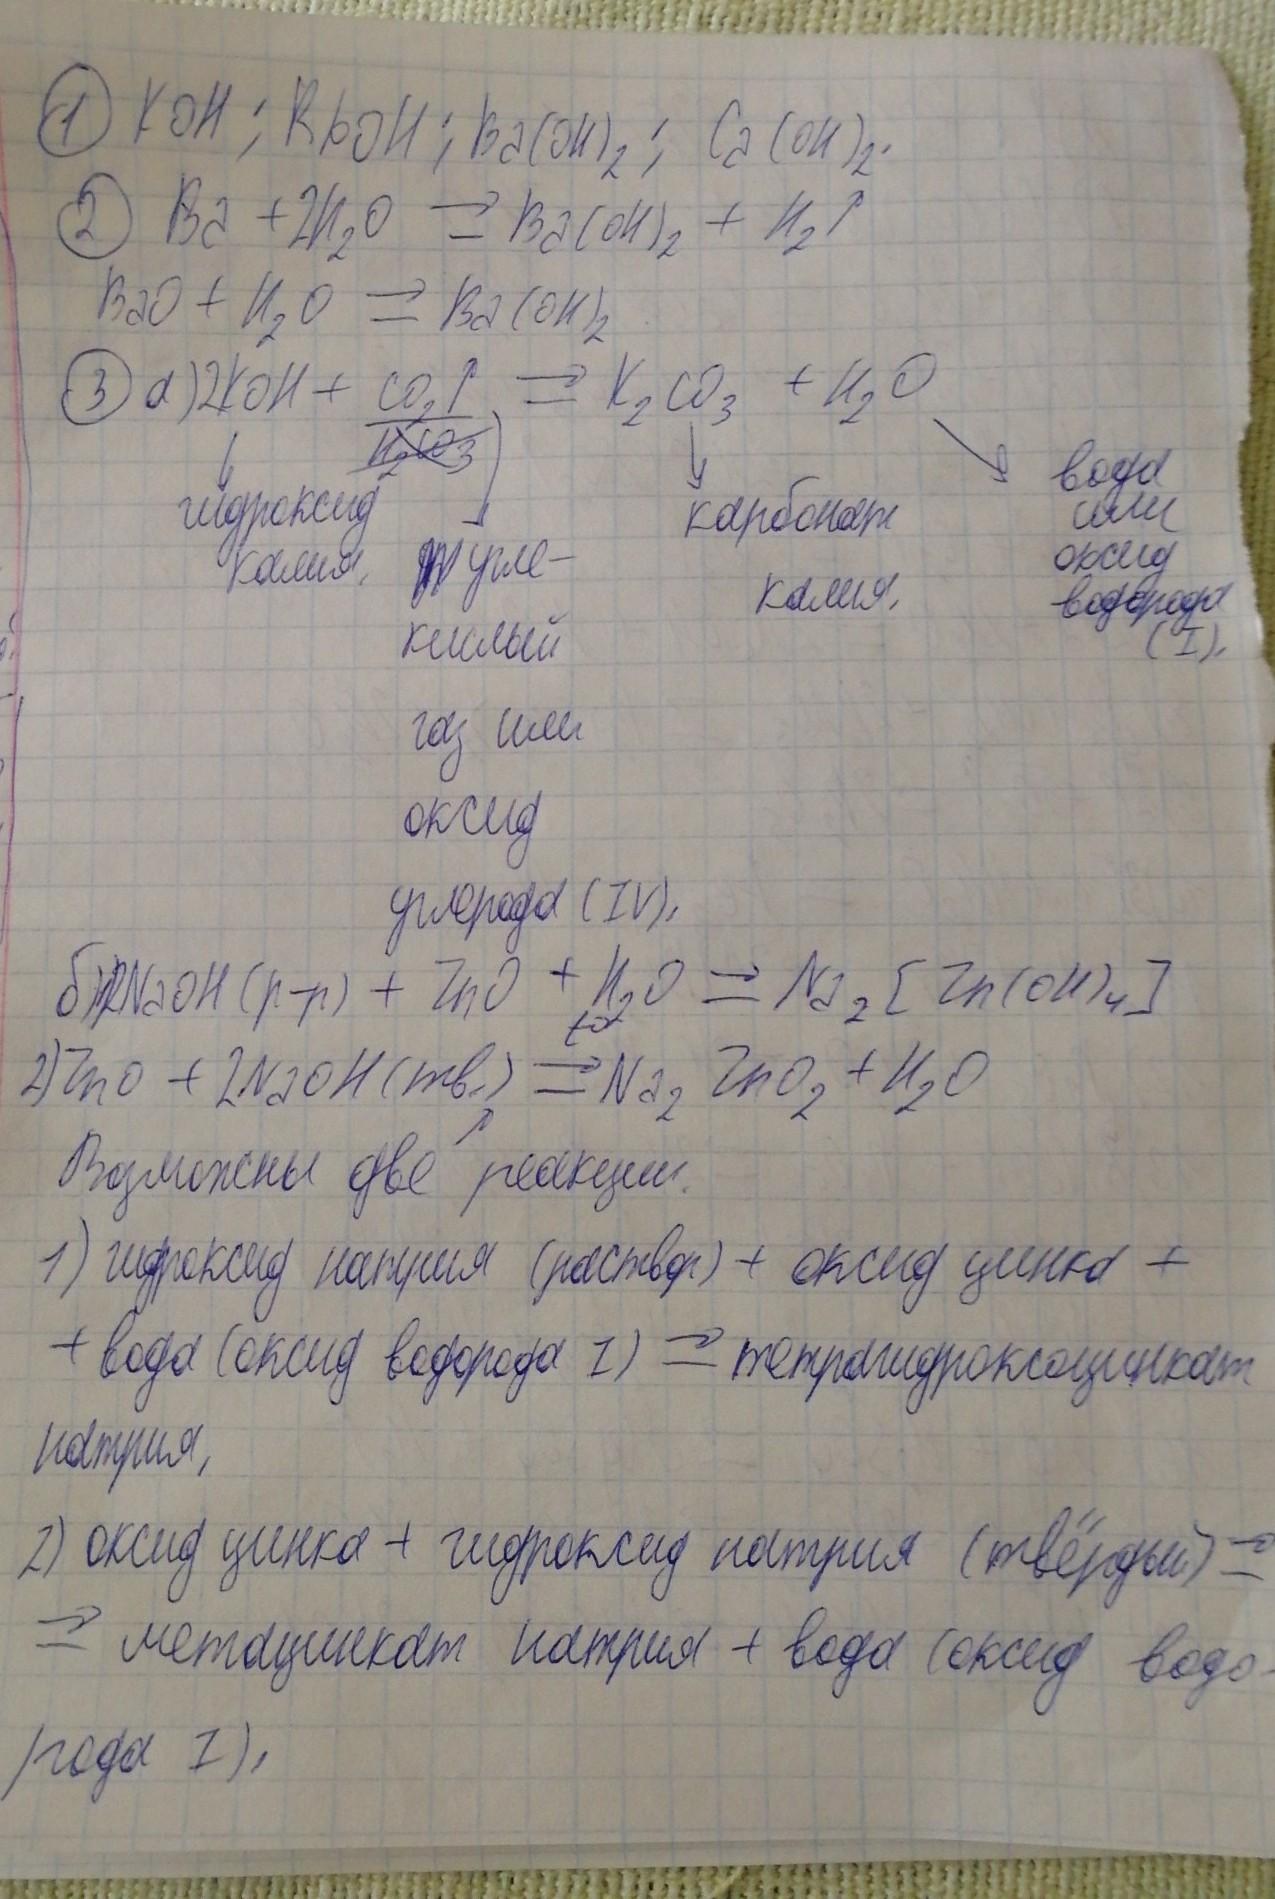 ① KOH; RbOH; Ba(OH)₂; Ca(OH)₂.
② Ba + 2H₂O ⇒ Ba(OH)₂ + H₂↑
BaO + H₂O ⇒ Ba(OH)₂
③ а) 2KOH + CO₂↑ ⇒ K₂CO₃ + H₂O
H₂CO₃
гидроксид калия.
углекислый газ или оксид углерода (IV).
карбонат калия.
вода или оксид водорода (I).
б) 2NaOH (р-р) + ZnO + H₂O ⇒ Na₂[Zn(OH)₄]
2) ZnO + 2NaOH (тв.) t° ⇒ Na₂ZnO₂ + H₂O
Возможны две реакции.
1) гидроксид натрия (раствор) + оксид цинка +
+ вода (оксид водорода I) ⇒ тетрагидроксоцинкат
натрия,
2) оксид цинка + гидроксид натрия (твёрдый) ⇒
⇒ метацинкат натрия + вода (оксид водо-
рода I).